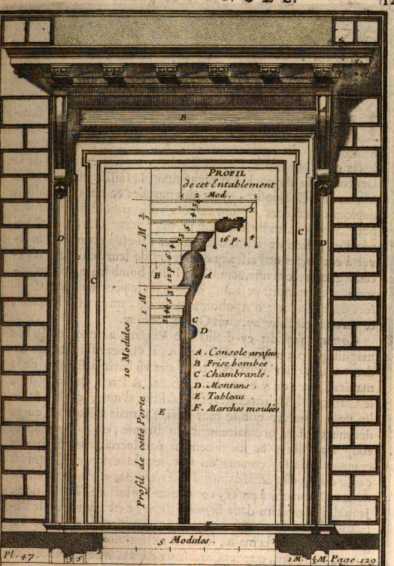 B
PROFIL
de cet Entablement
2 Mod.
16 p.
4
A
B
C
D
D
D
C
C
A. Console arasée
B. Frise bombée
C. Chambranle.
D. Montans.
E. Tableau
F. Marches moulées
E
10 Modules.
Profil de cette Porte.
5 Modules.
Pl. 47
5
1 M.
Page 129